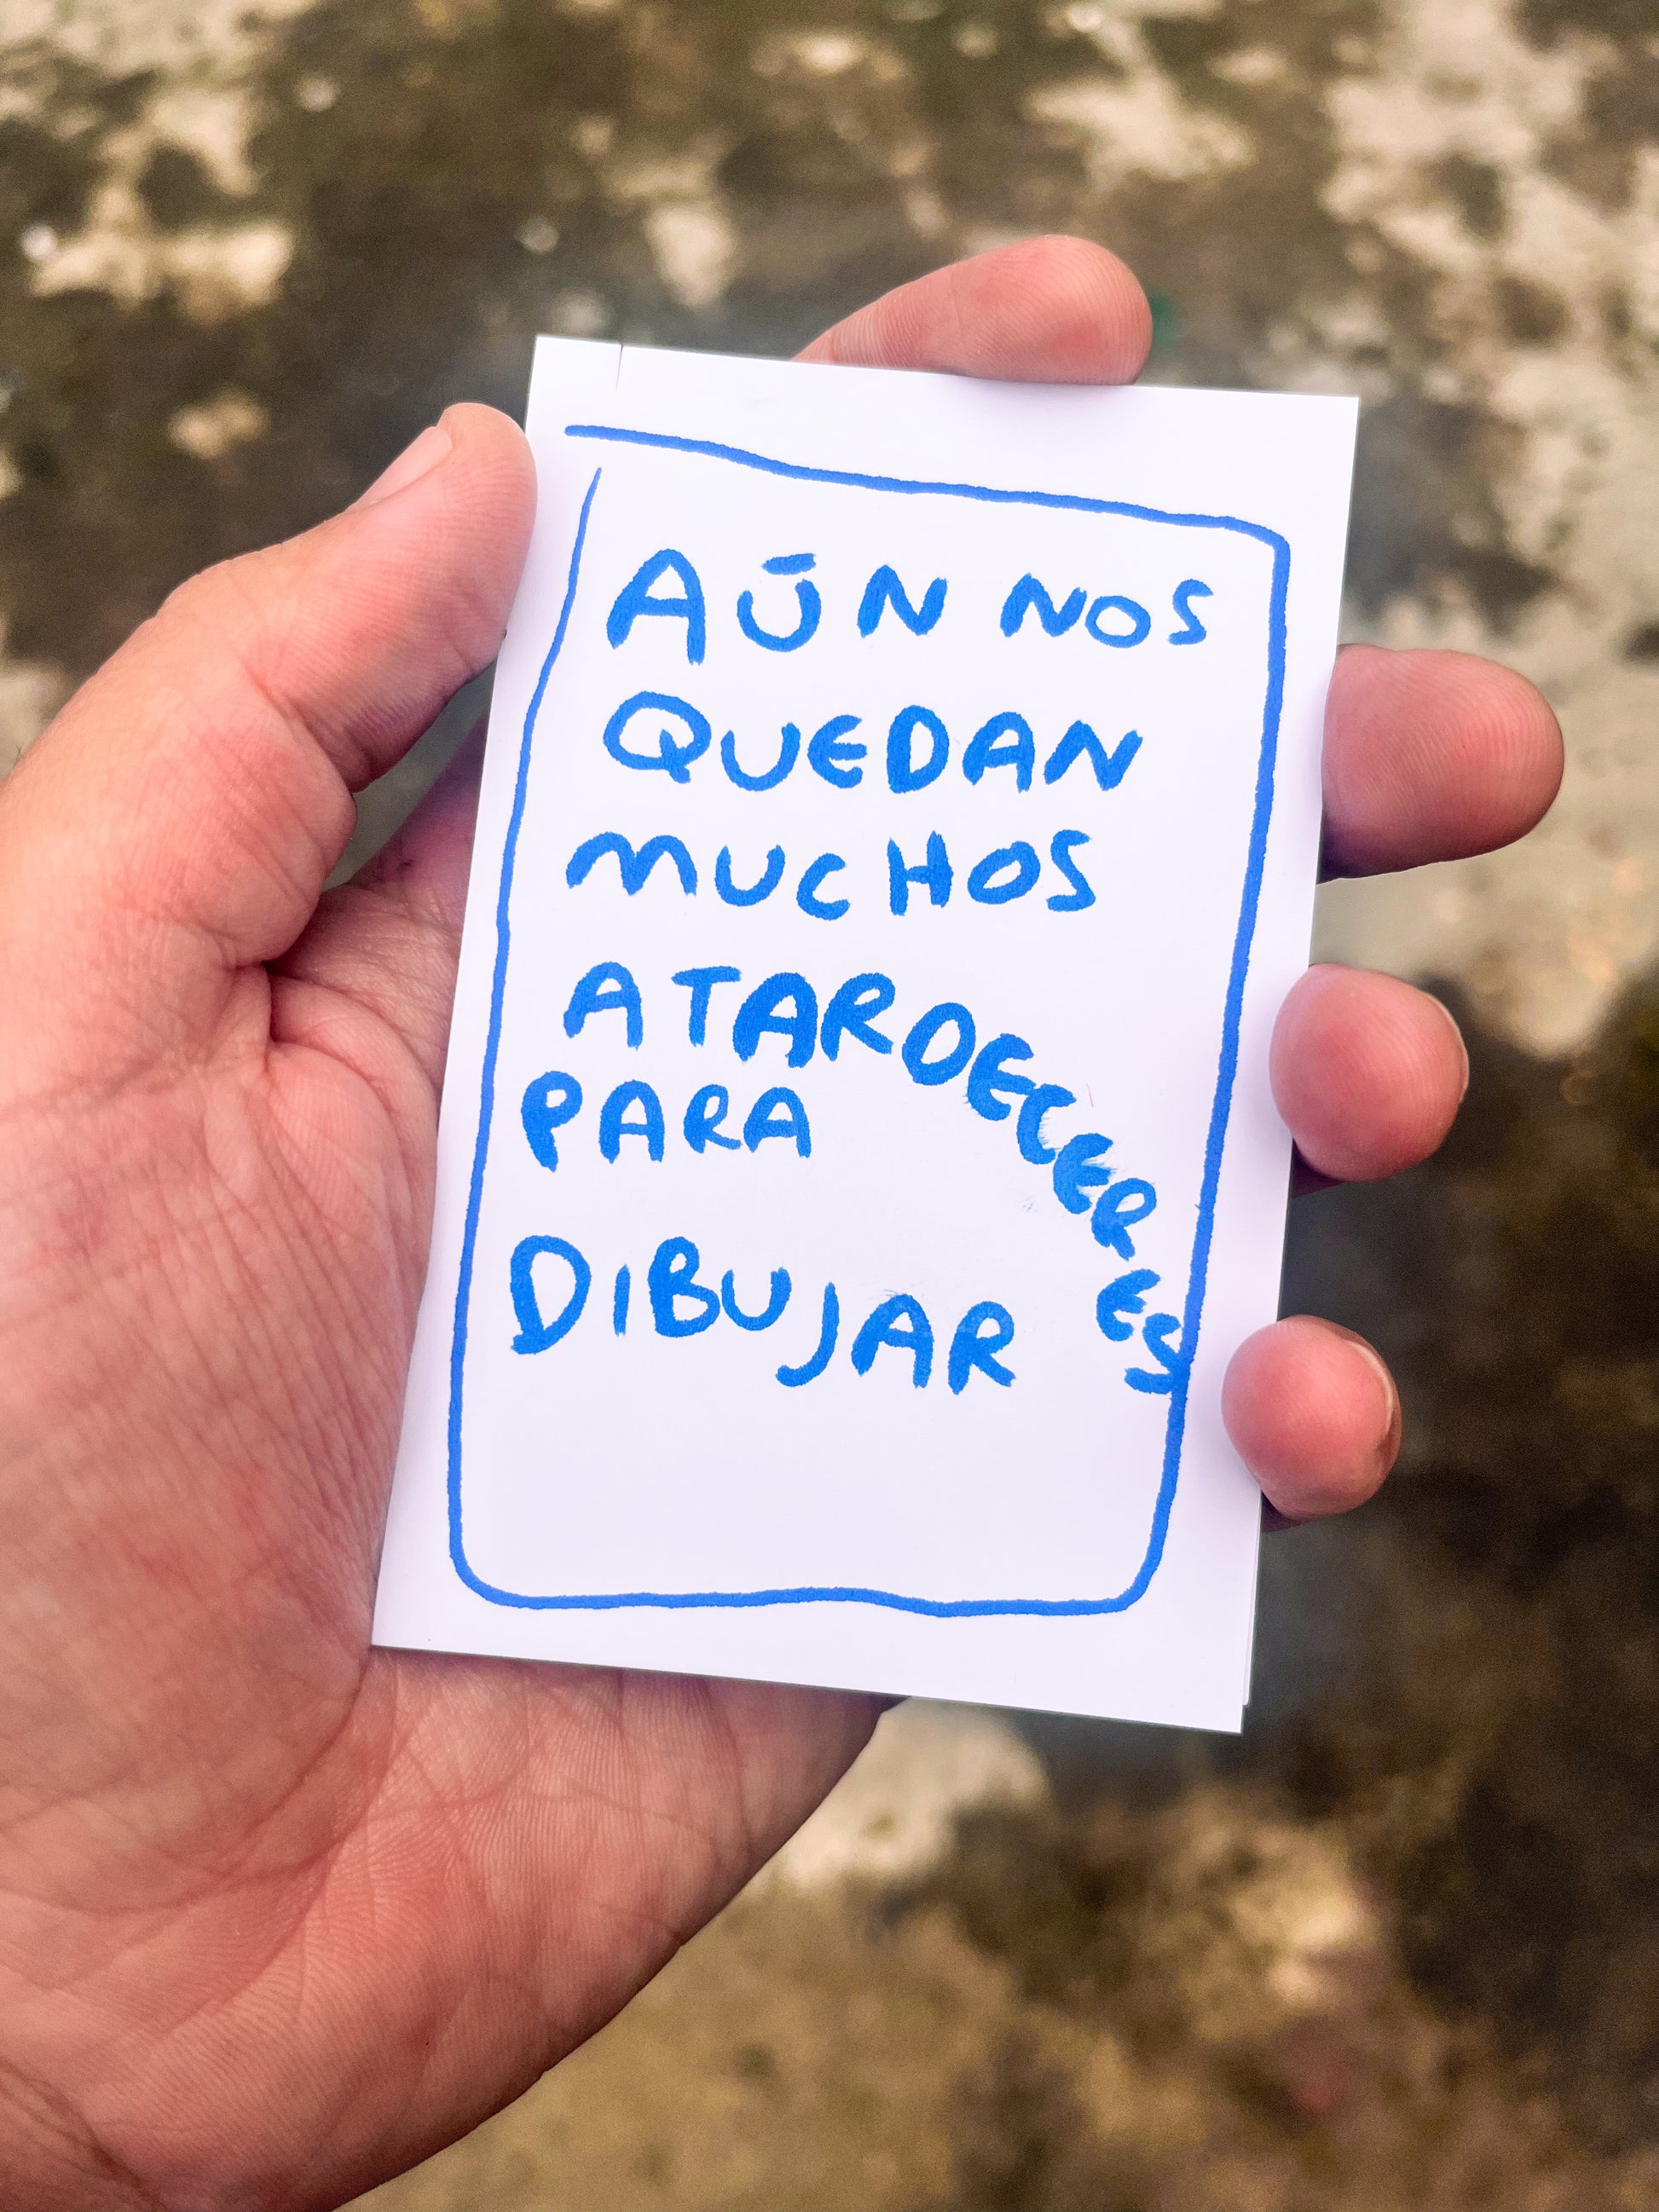 AÚN NOS
QUEDAN
MUCHOS
ATARDECERES
PARA
DIBUJAR